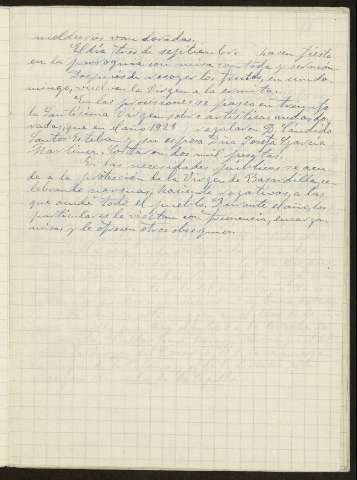 molduras van doradas.
El día tres de septiembre hacen fiesta
en la parroquia con misa cantada y sermón.
Después de recoger los frutos, en un do
mingo, vuelven la Virgen a la ermita.
En las procesiones se pasea en triunfo
la Santísima Virgen sobre artísticas andas do
radas, que en el año 1921 regalaron D. Cándido
Santos Esteban y su esposa Dña Josefa García
Martínez. Costaron dos mil pesetas.
En las necesidades públicas se acu
de a la protección de la Virgen de Basardilla, ce
lebrando novenas, haciendo rogativas, a las
que acude todo el pueblo. Durante el año, los
particulares la visitan con frecuencia, encargan
misas y le ofrecen otros obsequios.